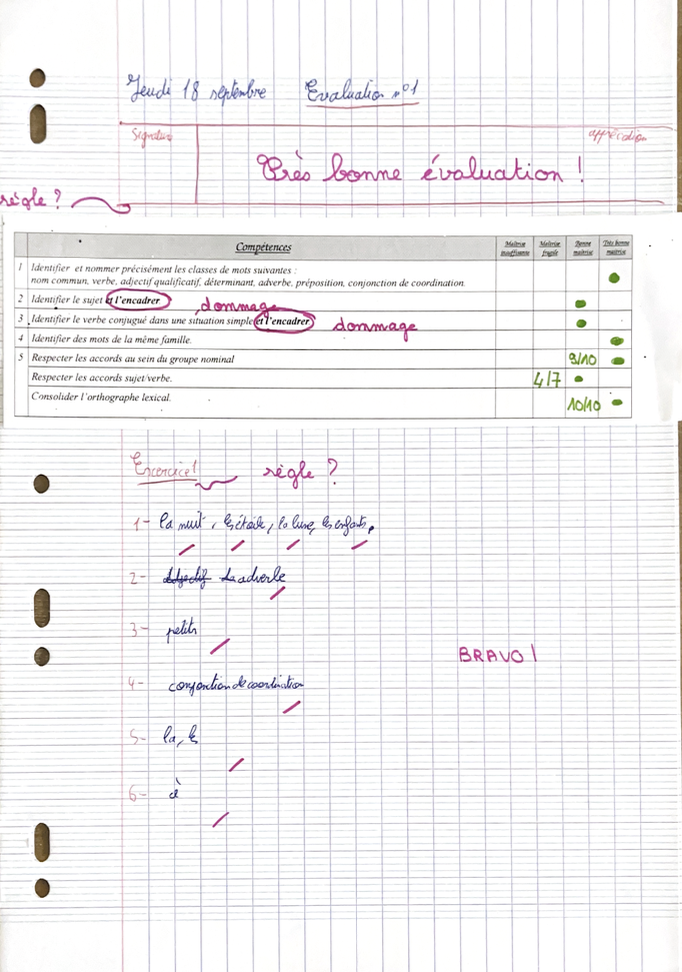 Jeudi 18 septembre Evaluation n°1
Signature appréciation
Très bonne évaluation !
règle ?
Compétences Maîtrise insuffisante Maîtrise fragile Bonne maîtrise Très bonne maîtrise
1 Identifier et nommer précisément les classes de mots suivantes :
nom commun, verbe, adjectif qualificatif, déterminant, adverbe, préposition, conjonction de coordination.
2 Identifier le sujet et l'encadrer dommage
3 Identifier le verbe conjugué dans une situation simple et l'encadrer dommage
4 Identifier des mots de la même famille.
5 Respecter les accords au sein du groupe nominal 9/10
Respecter les accords sujet/verbe. 4/7
Consolider l'orthographe lexical. 10/10
Excercice 1 règle ?
1- la nuit, les étoile, la lune, les enfants.
2- adjectif La adverbe
3- petits
BRAVO !
4- conjonction de coordination
5- la, les
6- à